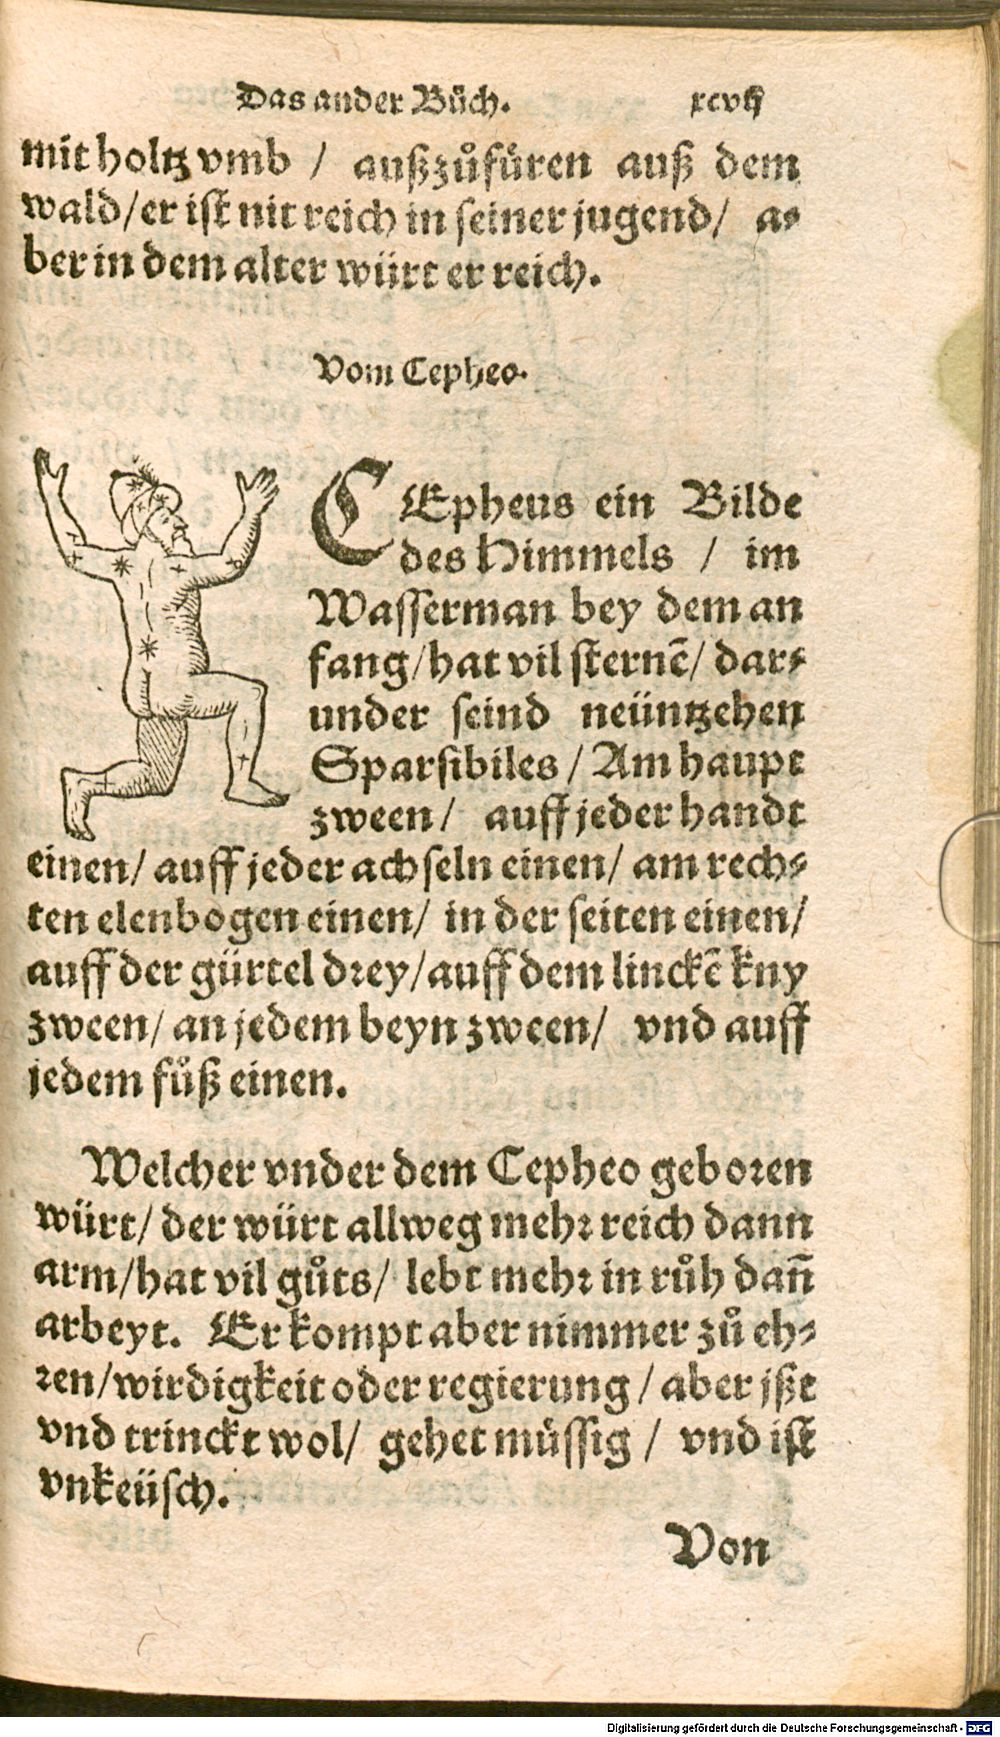 Das ander Bůch. xcvij
mit holtz vmb / außzůfüren auß dem
wald/er ist nit reich in seiner jugend/ a⸗
ber in dem alter würt er reich.
Vom Cepheo.
CEpheus ein Bilde
des Himmels / im
Wasserman bey dem an
fang/hat vil sternē/ dar⸗
under seind neüntzehen
Sparsibiles / Am haupt
zween/ auff jeder handt
einen/ auff jeder achseln einen/ am rech⸗
ten elenbogen einen/ in der seiten einen/
auff der gürtel drey/auff dem linckē kny
zween/ an jedem beyn zween/ vnd auff
jedem fůß einen.
Welcher vnder dem Cepheo geboren
würt/ der würt allweg mehr reich dann
arm/hat vil gůts/ lebt mehr in růh dañ
arbeyt. Er kompt aber nimmer zů eh⸗
ren/wirdigkeit oder regierung / aber jßt
vnd trinckt wol/ gehet müssig / vnd ist
vnkeüsch.
Von
Digitalisierung gefördert durch die Deutsche Forschungsgemeinschaft - DFG